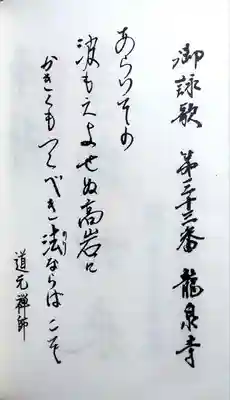 御詠歌 第三十三番 龍泉寺
あらいその
波もえよせぬ高岩に
かきもつくべき法ならはこそ
のり
道元禅師